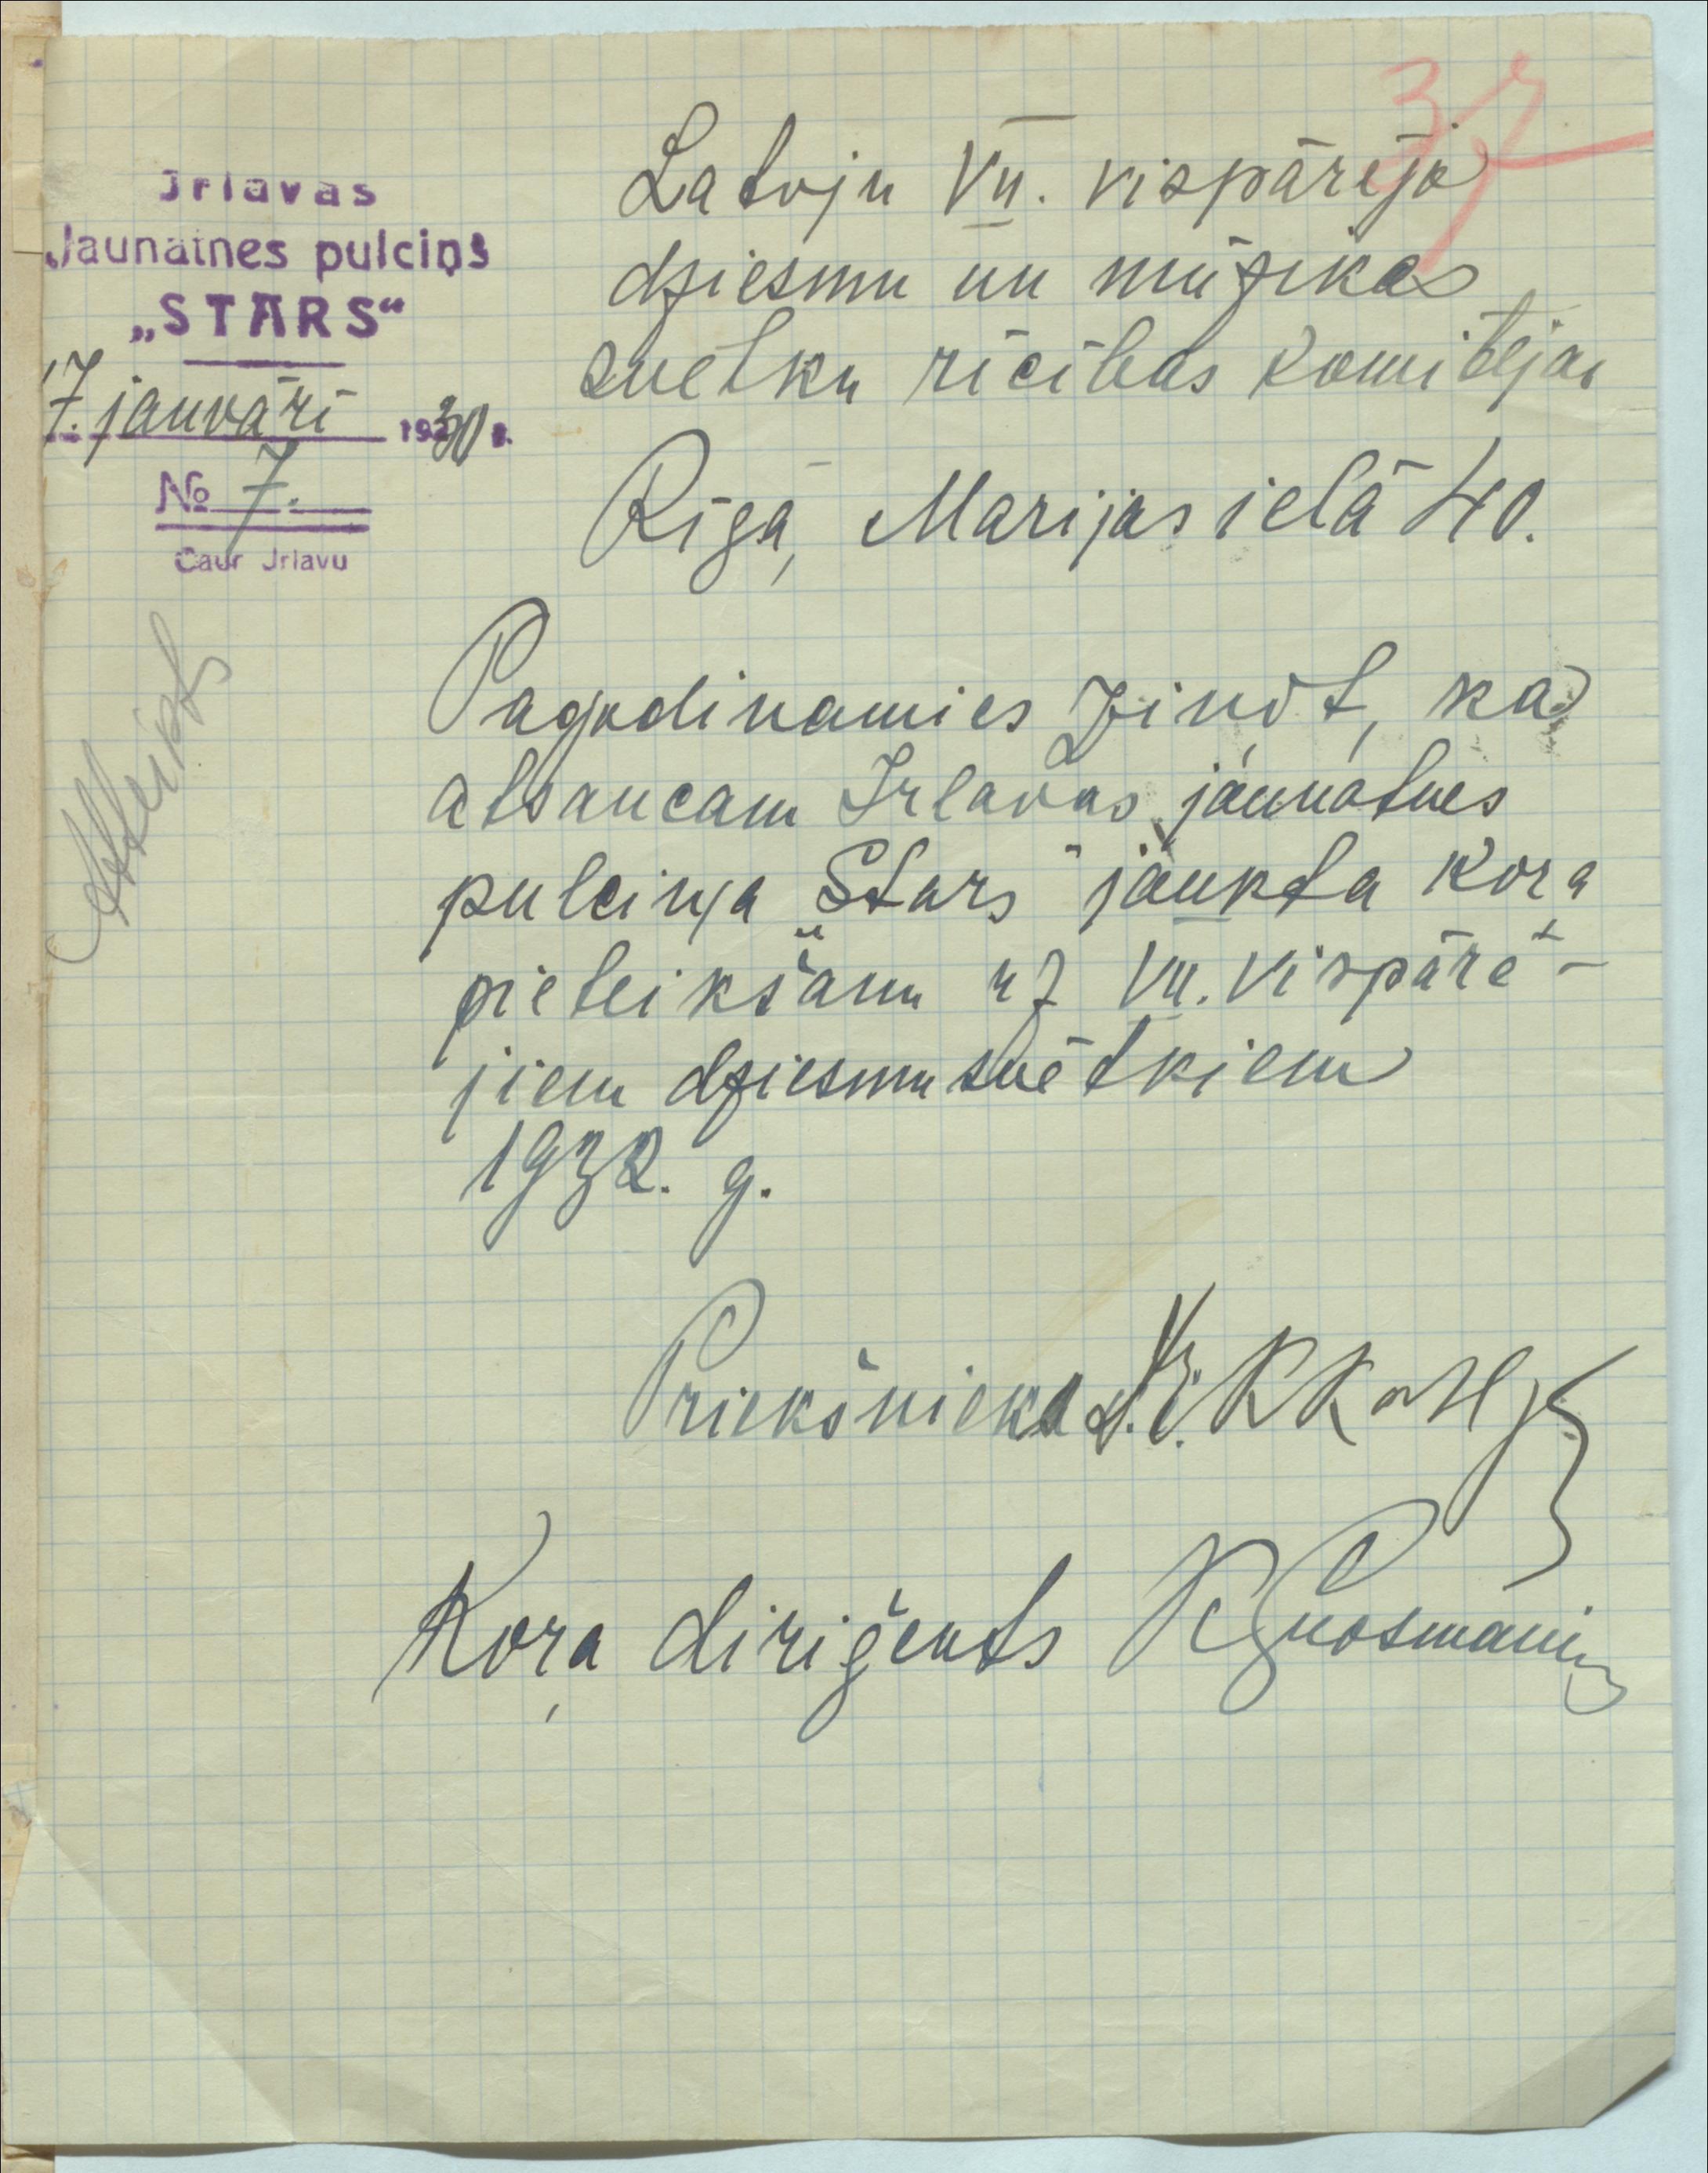 Irlavas
Jaunatnes pulciņš
„STARS“
17. janvārī 1930 g.
№ 7.
Caur Irlavu
Atteikts
37
Latvju VII. vispārējo
dziesmu un mūzikas
svētku rīcības komitejai
Rīgā, Marijas ielā 40.
Pagodinamies ziņot, ka
atsaucam Irlavas jaunatnes
pulciņa „Stars" jaukta kora
pieteikšanu uz VII. vispārē-
jiem dziesmu svētkiem
1932. g.
Priekšnieka v. i.
Koŗa diriģents